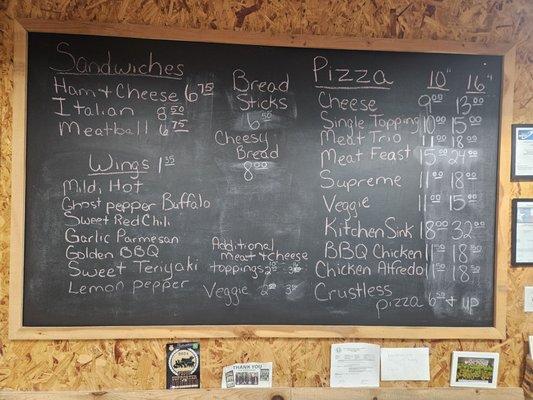 Sandwiches
Ham + Cheese 6.75
Italian 8.50
Meatball 6.75
Wings 1.35
Mild, Hot
Ghost pepper Buffalo
Sweet Red Chili
Garlic Parmesan
Golden BBQ
Sweet Teriyaki
Lemon pepper
Bread
Sticks
6.50
Cheesy
Bread
8.00
Additional
meat + cheese
toppings 2.
Veggie 2.
Pizza 10" 16"
Cheese 9.00 13.00
Single Topping 10.00 15.00
Meat Trio 11.00 18.00
Meat Feast 15.00 24.00
Supreme 11.00 18.00
Veggie 11.00 15.00
Kitchen Sink 18.00 32.00
BBQ Chicken 11.00 18.00
Chicken Alfredo 11.00 18.00
Crustless
pizza 6.50 + up
THANK YOU